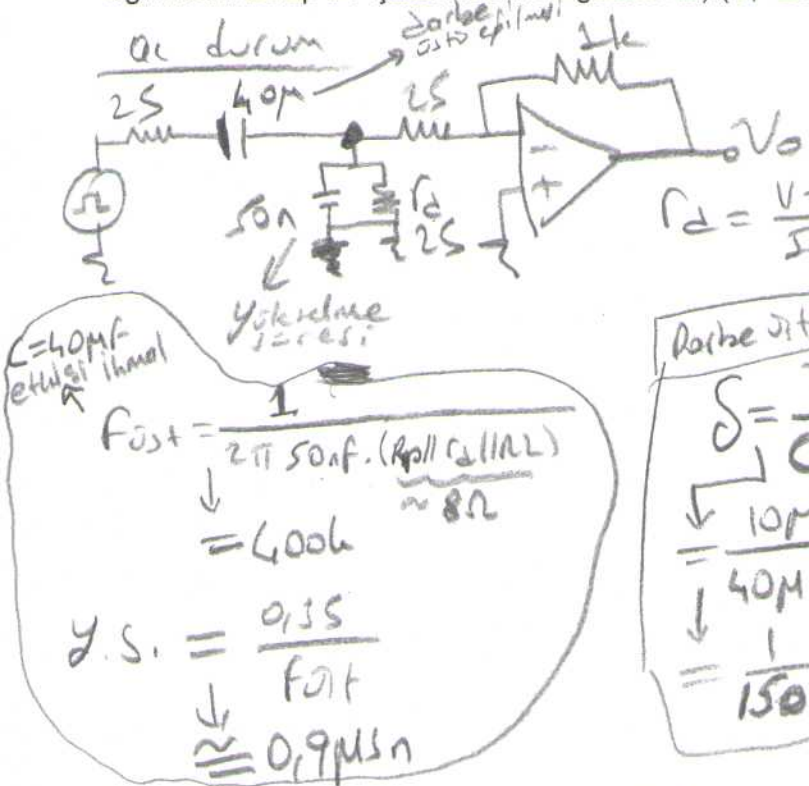 ac durum
darbe
üstü eğilmesi
25
40μ
25
1k
50n
rd
25
Vo
rd = V
Yükselme
süresi
C=40μF
etkisi ihmal
füst = 1
2π 50nf. (Rp//rd//RL)
≈ 8Ω
= 400k
Y.S. = 0,35
füst
≅ 0,9μsn
Darbe üst
δ =
= 10μ
40μ
= 1
150